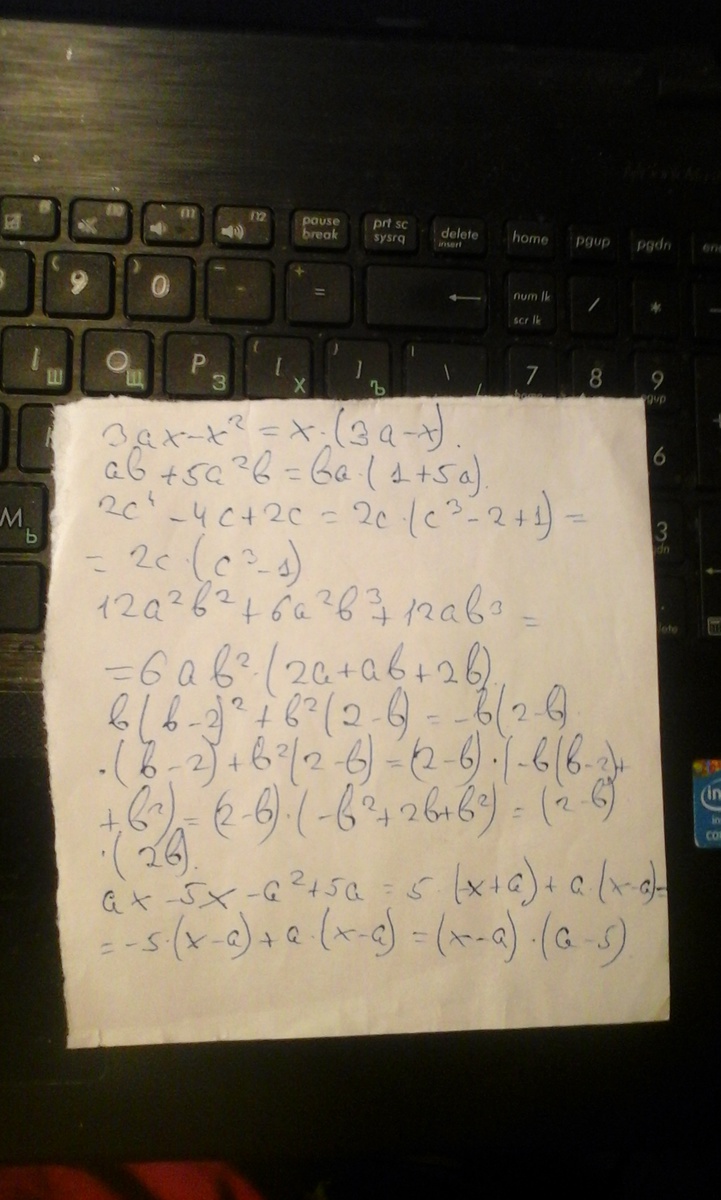 f9
f10
f11
f12
pause break
prt sc sysrq
delete insert
home
pgup
pgdn
( 9
) 0
- 
+ =
←
num lk scr lk
/
*
-
I Ш
O Щ
P З
{ [ Х
} ] Ъ
| \ /
7 home
8
9 pgup
6
M Ь
3
3ax-x² = x·(3a-x).
ab+5a²b = ba·(1+5a).
2c⁴-4c+2c = 2c·(c³-2+1) =
= 2c·(c³-1)
12a²b²+6a²b³+12ab³ =
=6ab²·(2a+ab+2b)
b(b-2)²+b²(2-b) = -b(2-b)
·(b-2)+b²(2-b) = (2-b)·(-b(b-2)+
+b²) = (2-b)·(-b²+2b+b²) = (2-b)
·(2b).
ax-5x-a²+5a = 5·(-x+a)+a·(x-a)=
=-5·(x-a)+a·(x-a) = (x-a)·(a-5)
in